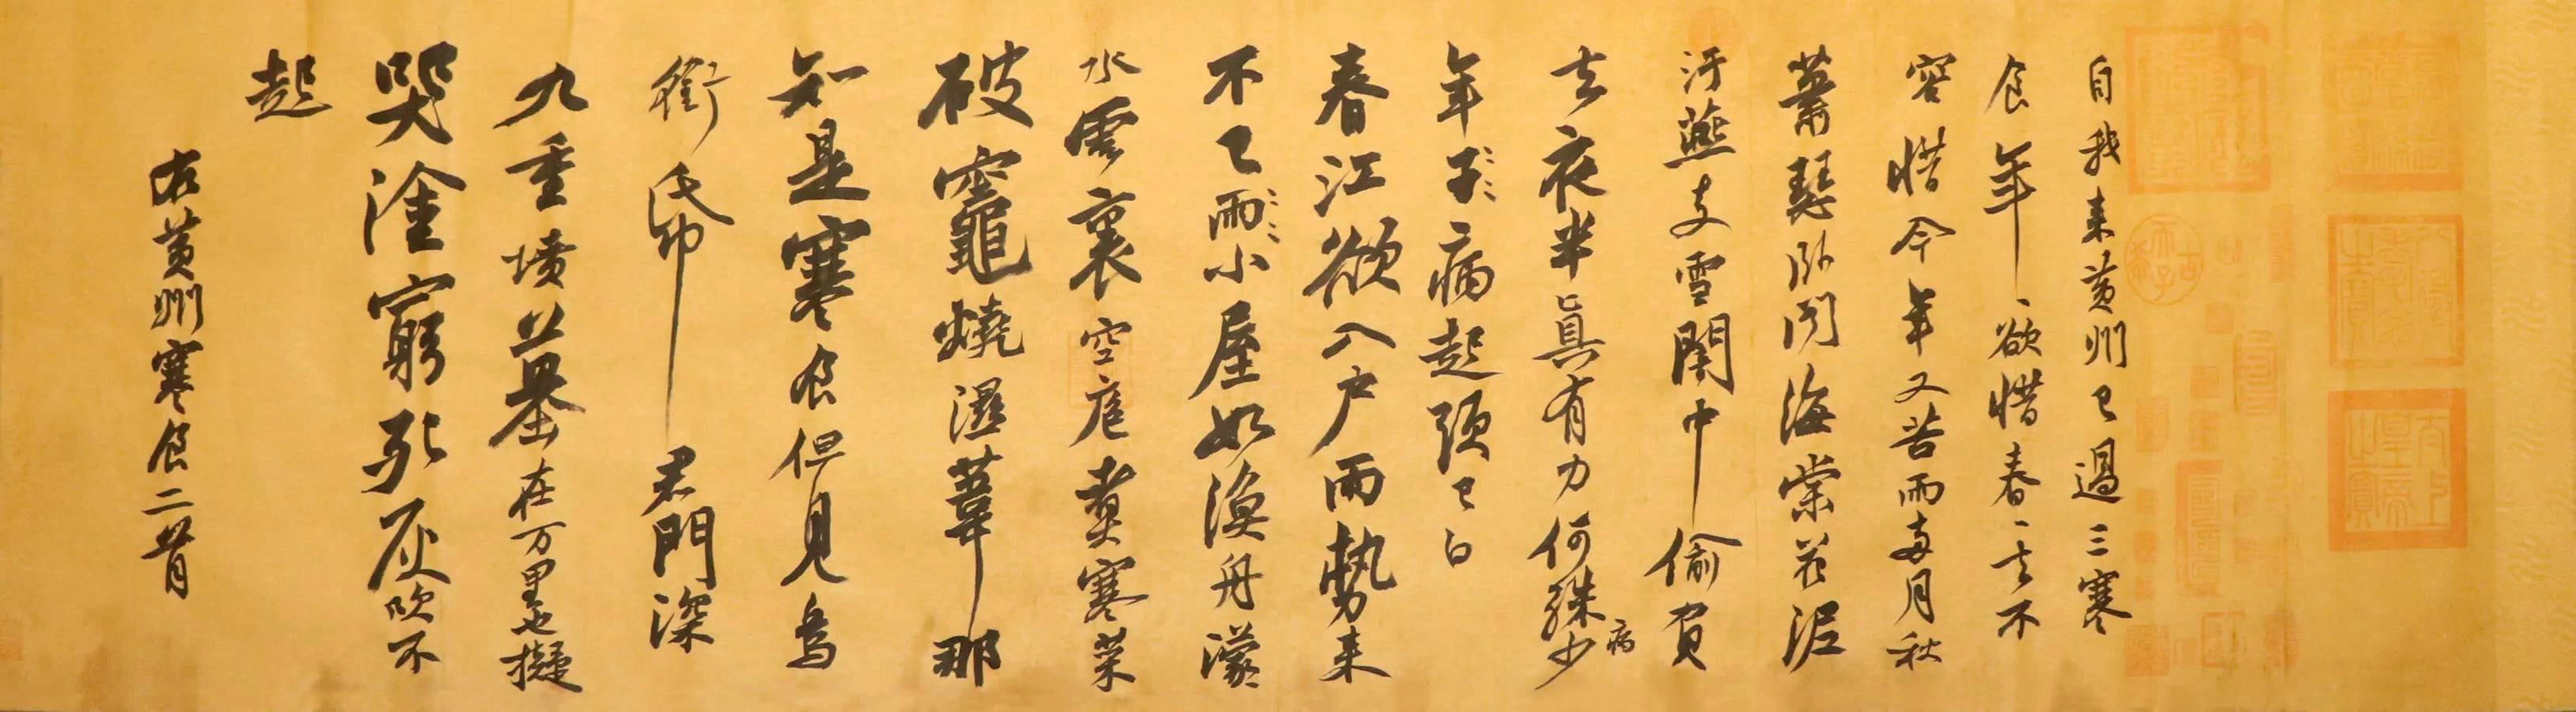 自我来黄州已過三寒
食年年欲惜春春去不
容惜今年又苦雨兩月秋
蕭瑟卧聞海棠花泥
汙燕支雪闇中偷負
去夜半真有力何殊少
年子病起頭已白
病
春江欲入户雨勢来
不已雨小屋如漁舟濛
水雲裏空庖煑寒菜
破竈燒濕葦那
知是寒食但見烏
銜帋君門深
九重墳墓在万里也擬
哭塗窮死灰吹不
起
右黄州寒食二首